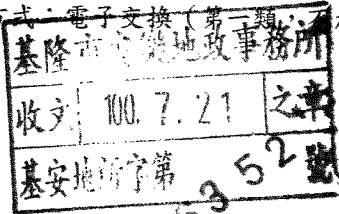 式：電子交換（第一類，不
基隆市安樂地政事務所
收文 100.7.21 之章
基安地所字第 6352 號